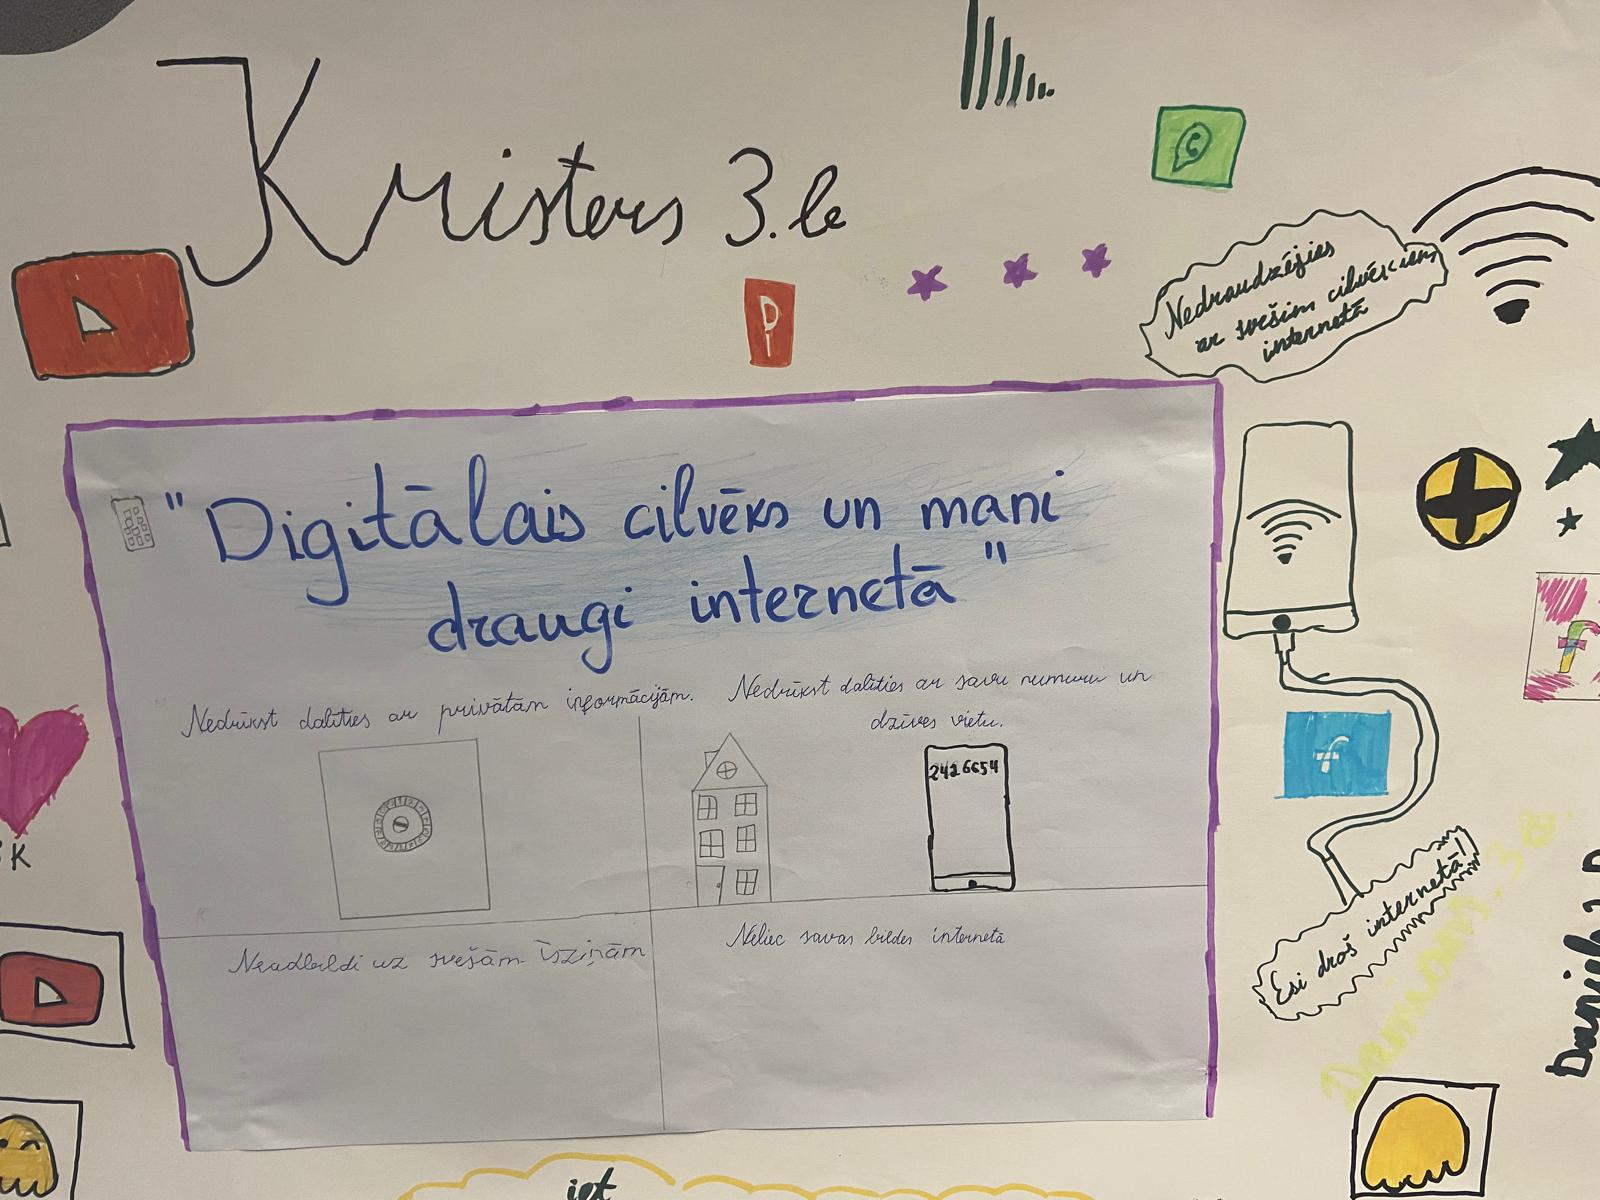 Kristers 3.le
Nedraudzējies
ar svešim cilvēkiem
internetā
"Digitālais cilvēks un mani
draugi internetā"
Nedrīkst dalīties ar privātām informācijām.
Nedrīkst dalīties ar savu numuru un
dzīves vietu.
242 6654
Neadbildi uz svešām īsziņām
Neliec savas bildes internetā
Esi droš internetā!